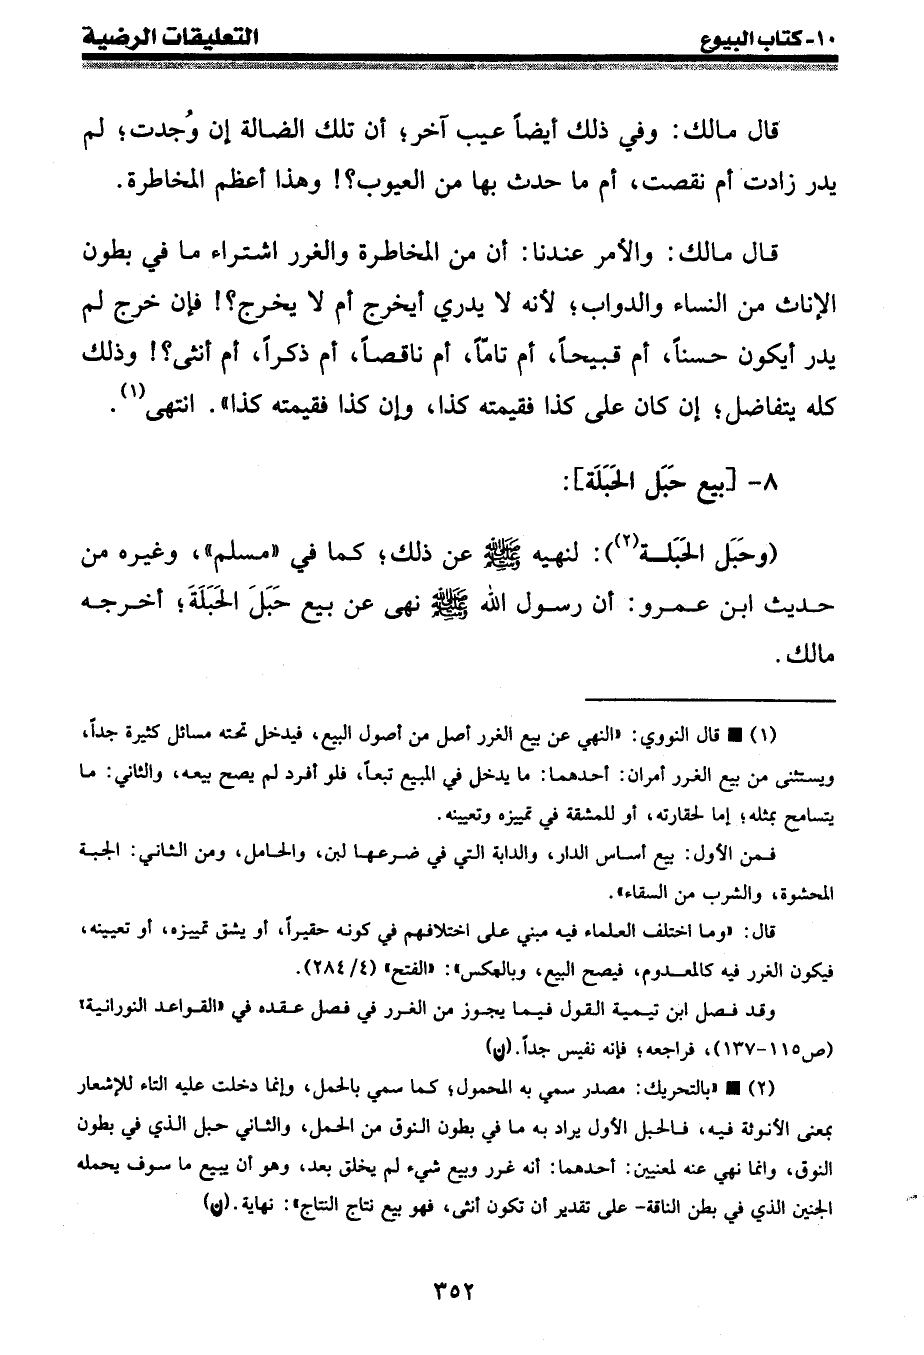 ١٠- كتاب البيوع
التعليقات الرضية
قال مالك: وفي ذلك أيضاً عيب آخر؛ أن تلك الضالة إن وُجدت؛ لم
يدر زادت أم نقصت، أم ما حدث بها من العيوب؟! وهذا أعظم المخاطرة.
قال مالك: والأمر عندنا: أن من المخاطرة والغرر اشتراء ما في بطون
الإناث من النساء والدواب؛ لأنه لا يدري أيخرج أم لا يخرج؟! فإن خرج لم
يدر أيكون حسناً، أم قبيحاً، أم تامّاً، أم ناقصاً، أم ذكراً، أم أنثى؟! وذلك
كله يتفاضل؛ إن كان على كذا فقيمته كذا، وإن كذا فقيمته كذا». انتهى(١).
٨- [بيع حبَل الحَبَلَة]:
(وحبَل الحَبَلـة(٢)): لنهيه ﷺ عن ذلك؛ كما في «مسلم»، وغيره من
حديث ابن عمرو: أن رسول الله ﷺ نهى عن بيع حَبَلَ الحَبَلَةَ؛ أخرجه
مالك.
(١) ■ قال النووي: «النهي عن بيع الغرر أصل من أصول البيع، فيدخل تحته مسائل كثيرة جداً،
ويستثنى من بيع الغرر أمران: أحدهما: ما يدخل في المبيع تبعاً، فلو أفرد لم يصح بيعه، والثاني: ما
يتسامح بمثله؛ إما لحقارته، أو للمشقة في تمييزه وتعيينه.
فمن الأول: بيع أساس الدار، والدابة التي في ضرعها لبن، والحامل، ومن الثاني: الجبة
المحشوة، والشرب من السقاء».
قال: «وما اختلف العلماء فيه مبني على اختلافهم في كونه حقيراً، أو يشق تمييزه، أو تعيينه،
فيكون الغرر فيه كالمعدوم، فيصح البيع، وبالعكس»: «الفتح» (٤/ ٢٨٤).
وقد فصل ابن تيمية القول فيما يجوز من الغرر في فصل عقده في «القواعد النورانية»
(ص١١٥-١٣٧)، فراجعه؛ فإنه نفيس جداً.(ن)
(٢) ■ «بالتحريك: مصدر سمي به المحمول؛ كما سمي بالحمل، وإنما دخلت عليه التاء للإشعار
بمعنى الأنوثة فيه، فالحبل الأول يراد به ما في بطون النوق من الحمل، والثاني حبل الذي في بطون
النوق، وانما نهي عنه لمعنيين: أحدهما: أنه غرر وبيع شيء لم يخلق بعد، وهو أن يبيع ما سوف يحمله
الجنين الذي في بطن الناقة- على تقدير أن تكون أنثى، فهو بيع نتاج النتاج»: نهاية.(ن)
٣٥٢